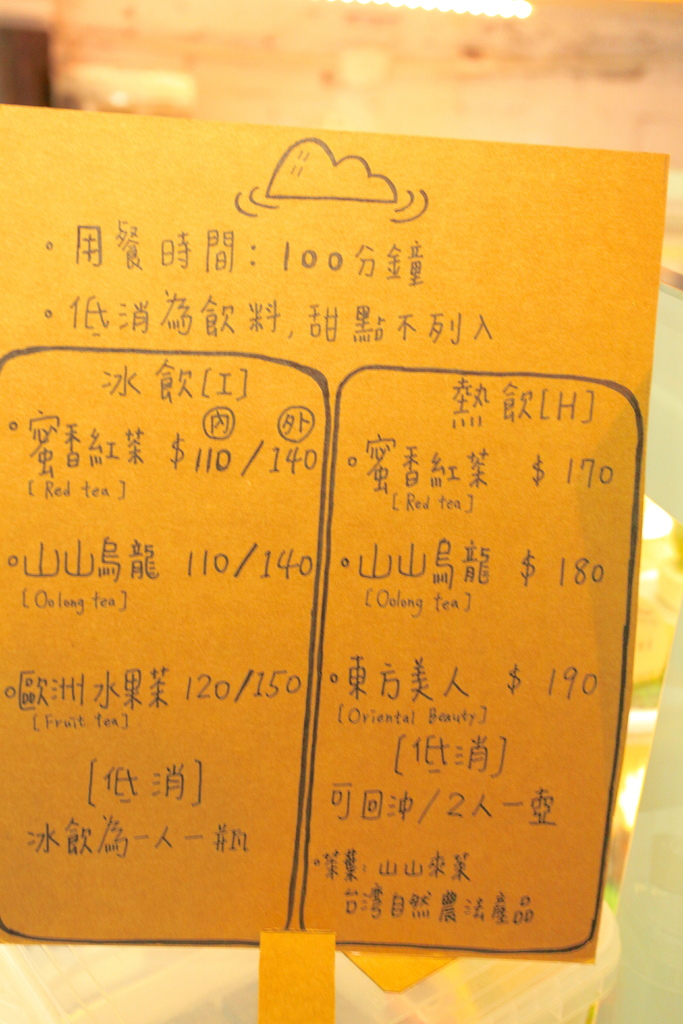 • 用餐時間: 100分鐘
• 低消為飲料, 甜點不列入
冰飲[I]
內 外
• 蜜香紅茶 $110/140
[Red tea]
• 山山烏龍 110/140
[Oolong tea]
• 歐洲水果茶 120/150
[Fruit tea]
[低消]
冰飲為一人一瓶
熱飲[H]
• 蜜香紅茶 $170
[Red tea]
• 山山烏龍 $180
[Oolong tea]
• 東方美人 $190
[Oriental Beauty]
[低消]
可回沖/2人一壺
• 茶葉: 山山來茶
台灣自然農法產品